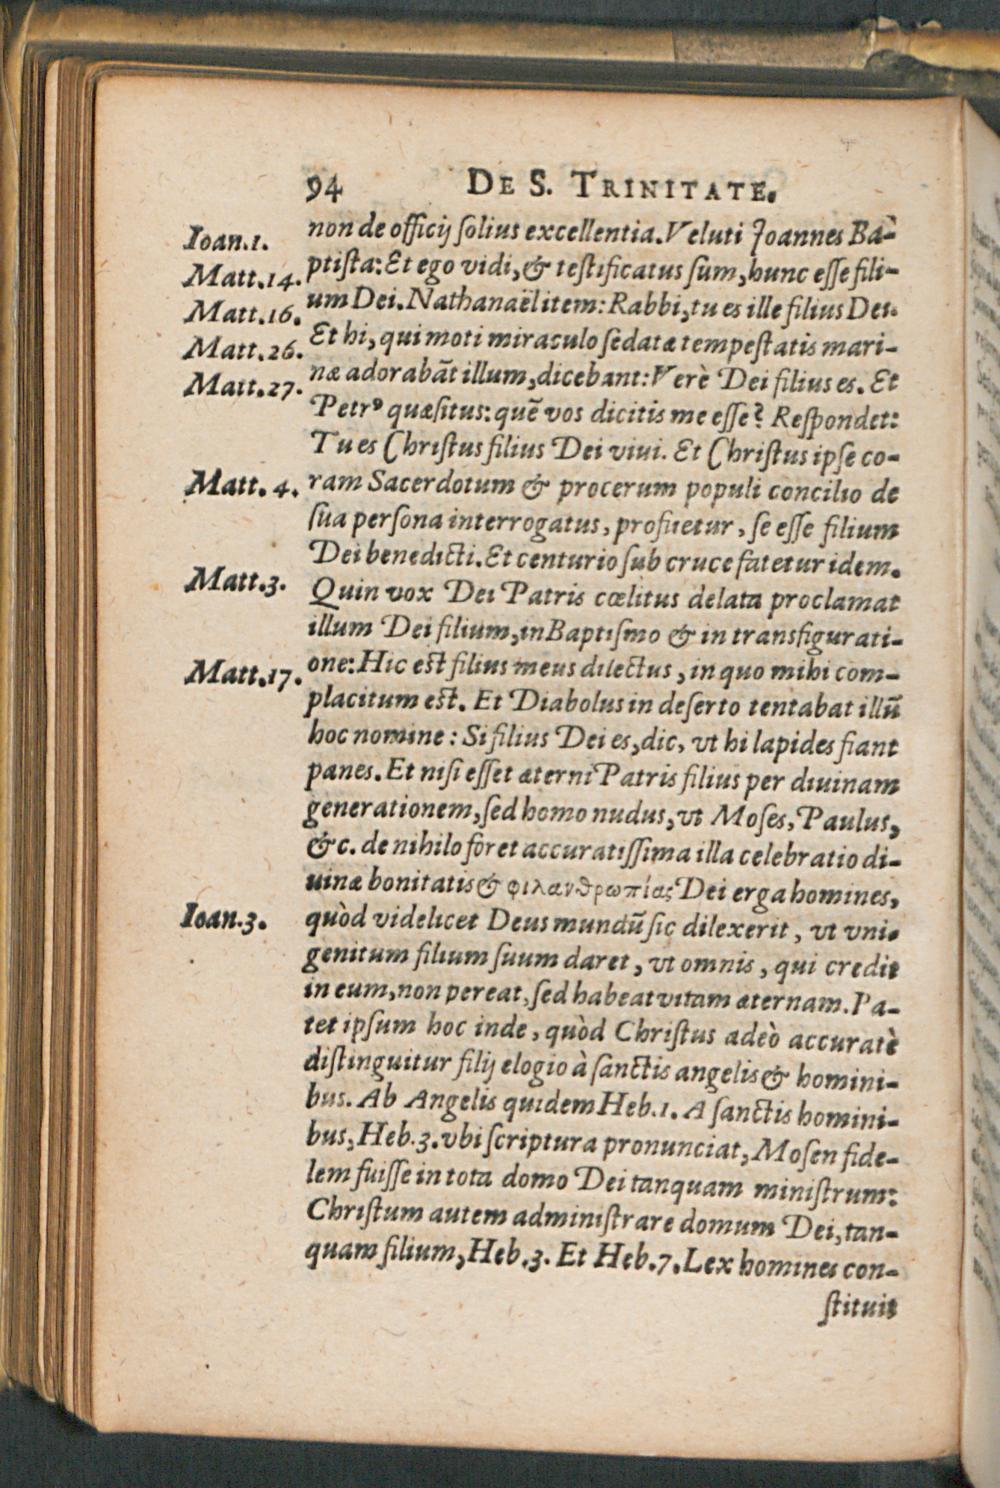 94 DE S. TRINITATE.
Ioan.1.
Matt.14.
Matt.16.
Matt.26.
Matt.27.
Matt. 4.
Matt.3.
Matt.17.
Ioan.3.
non de officij ſolius excellentia. Veluti Joannes Ba-
ptiſta: Et ego vidi, & teſtificatus ſum, hunc eſſe fili-
um Dei. Nathanaël item: Rabbi, tu es ille filius Dei.
Et hi, qui moti miraculo ſedatæ tempeſtatis mari-
næ adorabāt illum, dicebant: Verè Dei filius es. Et
Petrꝰ quæſitus: quē vos dicitis me eſſe? Reſpondet:
Tu es Chriſtus filius Dei viui. Et Chriſtus ipſe co-
ram Sacerdotum & procerum populi concilio de
ſua perſona interrogatus, profitetur, ſe eſſe filium
Dei benedicti. Et centurio ſub cruce fatetur idem.
Quin vox Dei Patris cœlitus delata proclamat
illum Dei filium, in Baptiſmo & in transfigurati-
one: Hic est filius meus dilectus, in quo mihi com-
placitum est. Et Diabolus in deſerto tentabat illū
hoc nomine: Si filius Dei es, dic, vt hi lapides fiant
panes. Et niſi eſſet æterni Patris filius per diuinam
generationem, ſed homo nudus, vt Moſes, Paulus,
&c. de nihilo foret accuratiſſima illa celebratio di-
uinæ bonitatis & φιλανθρωπίας Dei erga homines,
quòd videlicet Deus mundū ſic dilexerit, vt vni-
genitum filium ſuum daret, vt omnis, qui credit
in eum, non pereat, ſed habeat vitam æternam. Pa-
tet ipſum hoc inde, quòd Chriſtus adeò accuratè
diſtinguitur filij elogio à ſanctis angelis & homini-
bus. Ab Angelis quidem Heb.1. A ſanctis homini-
bus, Heb.3. vbi ſcriptura pronunciat, Moſen fide-
lem fuiſſe in tota domo Dei tanquam miniſtrum:
Chriſtum autem adminiſtrare domum Dei, tan-
quam filium, Heb.3. Et Heb.7. Lex homines con-
ſtituit